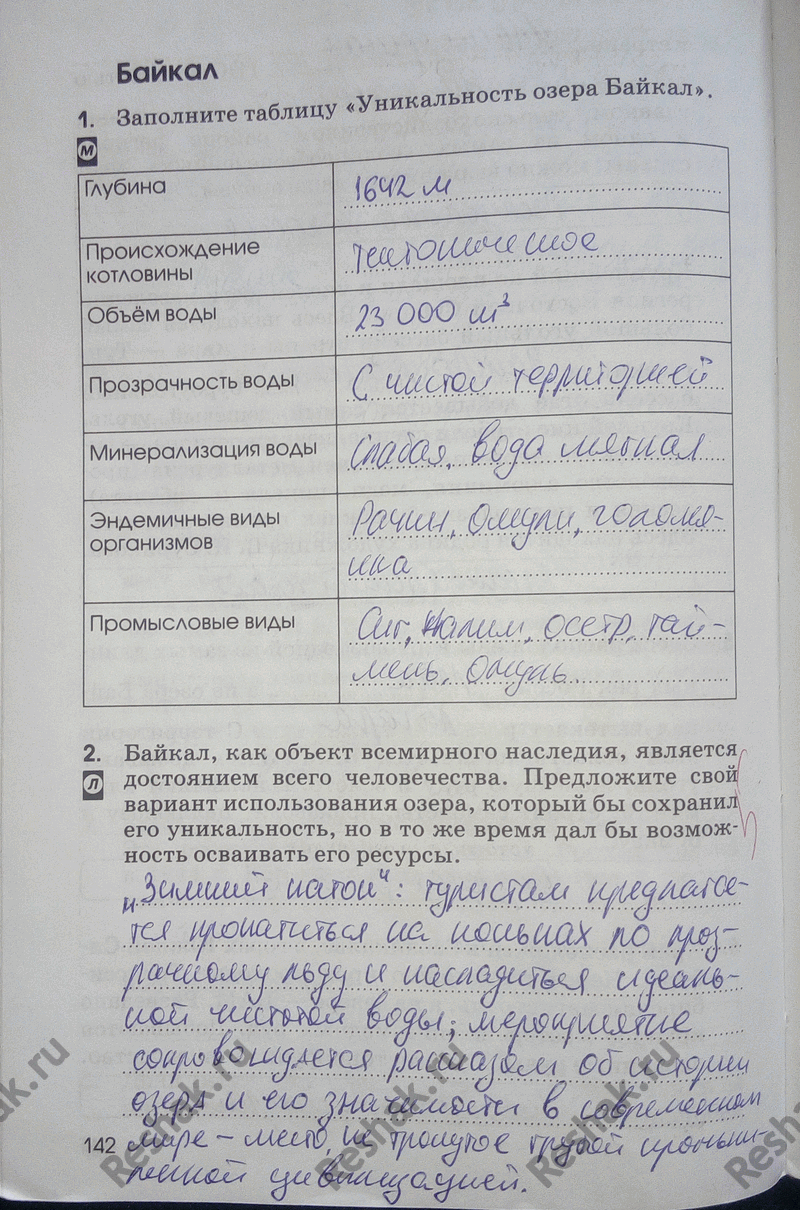 Байкал
1. Заполните таблицу «Уникальность озера Байкал».
м
Глубина
1642 м
Происхождение
котловины
тектоническое
Объём воды
23 000 м³
Прозрачность воды
С чистой территорией
Минерализация воды
Слабая, вода мягкая
Эндемичные виды
организмов
Рачки, Омули, голомя-
нка
Промысловые виды
Сиг, Налим, осетр, тай-
мень, Омуль
2. Байкал, как объект всемирного наследия, является
л
достоянием всего человечества. Предложите свой
вариант использования озера, который бы сохранил
его уникальность, но в то же время дал бы возмож-
ность осваивать его ресурсы.
„Зимний каток“: туристам предлагае-
тся прокатиться на коньках по проз-
рачному льду и насладиться идеаль-
ной чистотой воды; мероприятие
сопровождается рассказом об истории
озера и его значимости в современном
мире – место, не тронутое грубой промыш-
ленной цивилизацией.
142
ak.ru
Reshak.ru
Reshak.ru
Resh